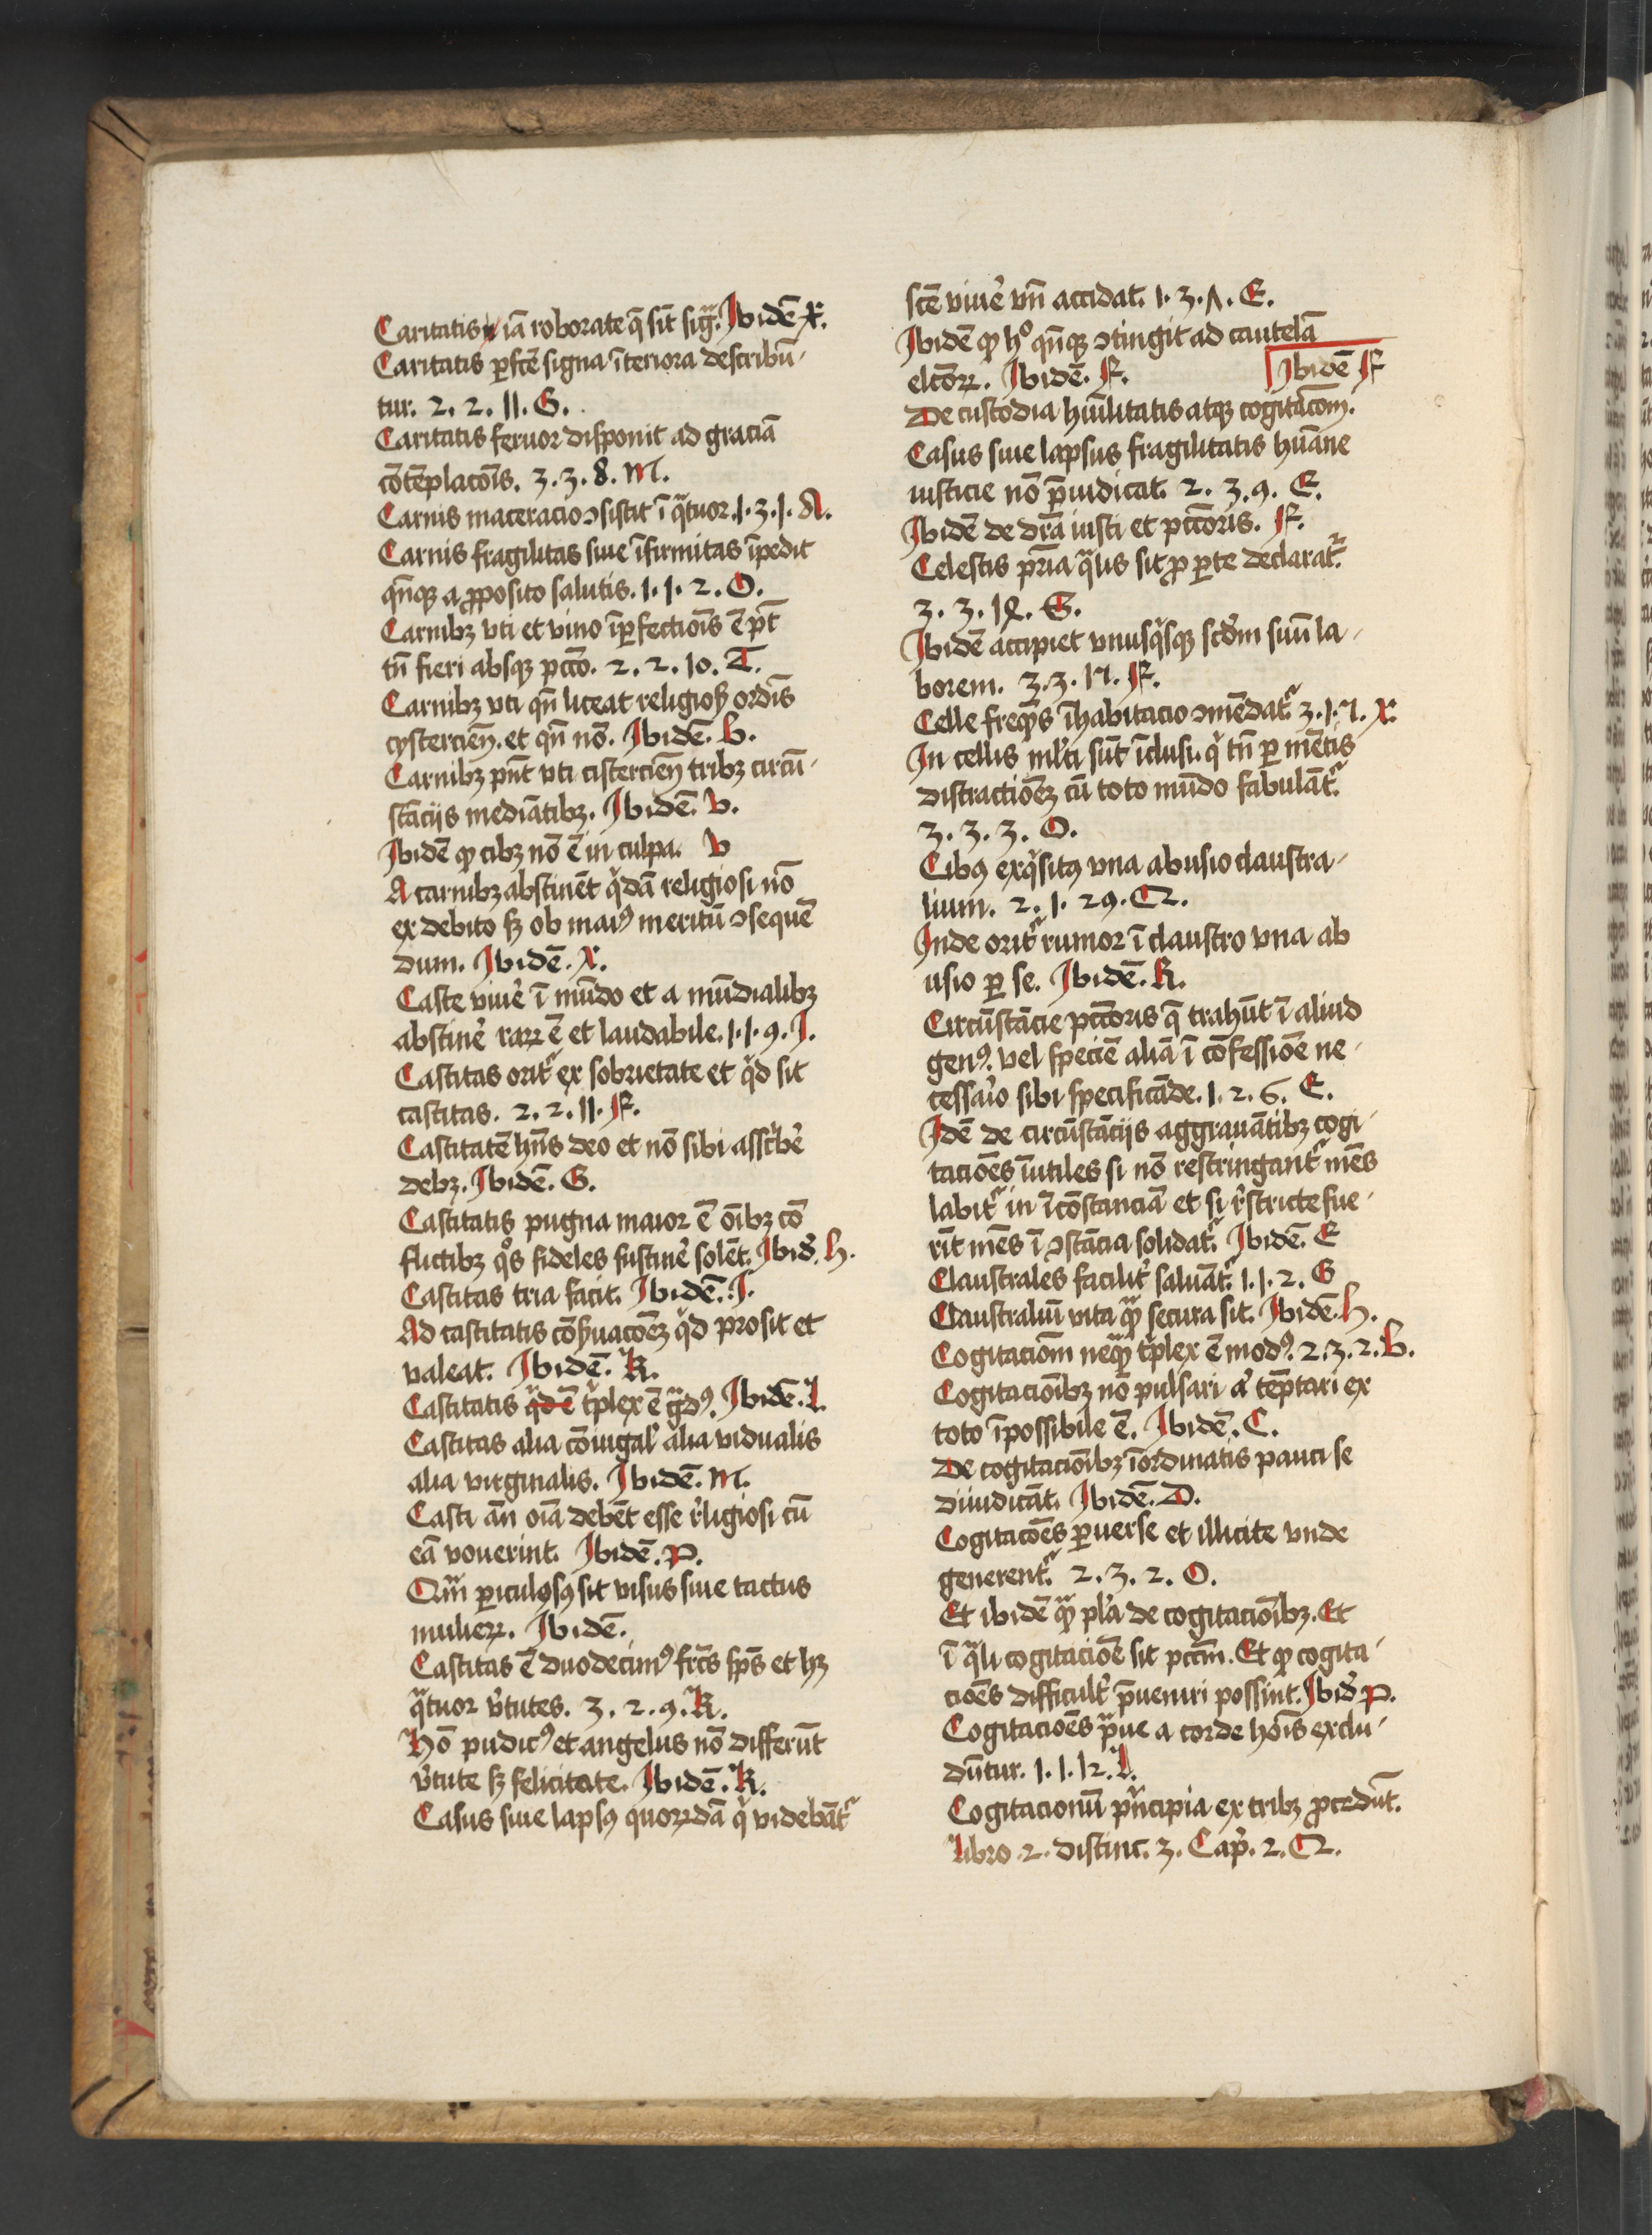 Caritatis iā roborate q̄ sit sigᷓ. Ibidē X.
Caritatis ꝑfcē signa īteriora describū-
tur. 2. 2. 11. G.
Caritatis feruor disponit ad graciā
cōtēplacōīs. 3. 3. 8. M.
Carnis maceracio ꝯsistit ī qᷓtuor. 1. 3. 1. A.
Carnis fragilitas siue īfirmitas īpedit
qn̄qꝫ a ꝓposito salutis. 1. 1. 2. O.
Carnibꝫ vti et vino īꝑfectiōīs ē pt̄
tn̄ fieri absqꝫ pctō. 2. 2. 10. T.
Carnibꝫ vti qn̄ liceat religioß ordīs
cysterciēn. et qn̄ nō. Ibidē. b.
Carnibꝫ pn̄t vti cisterciēn tribꝫ circū-
stācijs mediātibꝫ. Ibidē. V.
Ibidē ꝙ cibꝫ nō ē in culpa. V
A carnibꝫ abstinēt qͥdā religiosi nō
ex debito sꝫ ob maiꝰ meritū ꝯsequē
dum. Ibidē. X.
Caste viuē ī mūdo et a mūdialibꝫ
abstinē raꝝ ē et laudabile. 1. 1. 9. I.
Castitas oritᷣ ex sobrietate et qͥd sit
castitas. 2. 2. 11. F.
Castitatē hn̄s deo et nō sibi asscͥbē
debꝫ. Ibidē. G.
Castitatis pugna maior ē oībꝫ cō
flictibꝫ qͦs fideles sustinē solēt. Ibid̄. h.
Castitas tria facit. Ibidē. I.
Ad castitatis cōßuacōēꝫ qͥd prosit et
valeat. Ibidē. K.
Castitatis qͥd ē tͥplex ē gᷓdꝰ. Ibidē. L.
Castitas alia cōiugal̓ alia vidualis
alia virginalis. Ibidē. M.
Casti ān oīa debēt esse r̓ligiosi cū
eā vouerint. Ibidē. P.
Qm̄ ꝑiculosꝰ sit visus siue tactus
mulieꝝ. Ibidē.
Castitas ē duodecimꝰ frc̄s sp̄s et hꝫ
qᷓtuor v̓tutes. 3. 2. 9. K.
Hō pudicꝰ et angelus nō differūt
v̓tute sꝫ felicitate. Ibidē. K.
Casus siue lapsꝰ quoꝝdā qͥ videbātᷣ
scē viuē vn̄ accidat. 1. 3. ʌ. E.
Ibidē ꝙ hͦ qn̄qꝫ ꝯtingit ad cautelā
elcōꝝ. Ibidē. F.
Ibidē F
De custodia hūilitatis atqꝫ cogitacōm.
Casus siue lapsus fragilitatis hūane
iusticie nō p̄iudicat. 2. 3. 9. E.
Ibidē de dr̄a iusti et pctōris. F.
Celestis pr̄ia qᷓlis sit ꝓ ꝑte declaratᷣ.
3. 3. 18. G.
Ibidē accipiet vnusqͥsqꝫ scd̄m suū la-
borem. 3. 3. 17. F.
Celle freqn̄s īhabitacio ꝯmēdatᷣ 3. 1. ʌ. X.
In cellis ml̓ti sūt īclusi. qͥ tn̄ ꝑ mētis
distractiōēꝫ cū toto mūdo fabulātᷣ.
3. 3. 3. O.
Cibꝰ exqͥsitꝰ vna abusio claustra-
lium. 2. 1. 29. Q.
Inde oritᷣ rumor ī claustro vna ab
usio ꝑ se. Ibidē. R.
Circūstācie pctōris q̄ trahūt ī aliud
genꝰ. vel speciē aliā ī cōfessiōē ne-
cessaīo sibi specificāde. 1. 2. 6. E.
Idē de circūstācijs aggrauātibꝫ cogi-
taciōēs īutiles si nō restringantᷣ mēs
labitᷣ in īcōstanciā et si r̓stricte fue-
rīt mēs ī ꝯstācia solidatᷣ. Ibidē. E
Claustrales facilit̓ saluātᷣ. 1. 1. 2. G
Claustraliū vita qᷓꝫ secura sit. Ibidē. h.
Cogitaciōm neqᷓꝫ tͥplex ē modꝰ. 2. 3. 2. b.
Cogitaciōībꝫ nō pulsari aͨ tēptari ex
toto īpossibile ē. Ibidē. C.
De cogitaciōībꝫ īordinatis pauci se
diiudicāt. Ibidē. D.
Cogitacōēs ꝑuerse et illicite vnde
generentᷣ. 2. 3. 2. O.
Et ibidē qᷓꝫ pl̓a de cogitaciōībꝫ. Et
ī qᷓli cogitaciōē sit pctm̄. Et ꝙ cogita-
ciōēs difficult̓ p̄ueniri possint. Ibid̄. P.
Cogitaciōēs pᷓue a corde hoīs exclu-
dūtur. 1. 1. 12. L.
Cogitacionū pͥncipia ex tribꝫ ꝓcedūt.
Libro 2. distinc. 3. Cap̄. 2. Q.